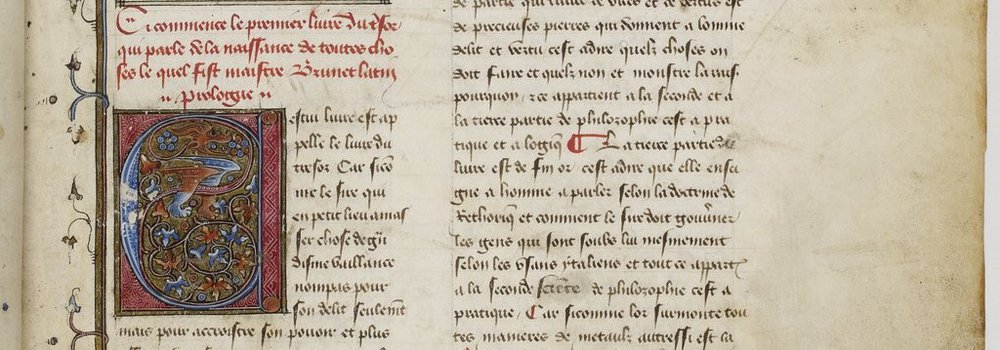 Ci commence le premier livre du tresor
qui parle de la naissance de toutes cho
ses le quel fist maistre Brunet latin
prologue
estui livre est ap
pelle le livre du
tresor Car sicõ
me le sire qui
en petit lieu amas
ser chose de grãt
disme vaillance
nompas pour
son delit seulemẽt
mais pour accroistre son pouoir et plus
de precieuses pierres qui donnent a lomme
delit et vertu cest adire quelz choses on
doit faire et quelz non et monstre la rais.
pourquoy. et ce appartient a la seconde et a
la tierce partie de philozophie cest a pra
tique et a logiq̃ La tierce partie du
livre est de fin or cest adire que elle ensei
gne a homme a parler selon la doctrine de
Rethoriq̃ et comment le sire doit gouuˀner
les gens qui sont soubs lui mesmement
selon les vsans ytaliens et tout ce appartˀ
a la seconde de philosophie cest a
pratique. Car sicomme lor surmonte tou
tes manieres de metaulx autressi est la